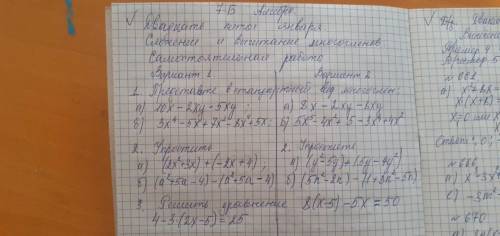 7-В Алгебра
Двадцать пятое января
Сложение и вычитание многочленов
Самостоятельная работа
Вариант 1
Вариант 2
1. Представьте в стандартный вид многочлен:
а) 10x - 2xy - 5xy;
а) 8x - 2xy - 6xy
б) 3x⁴ - 5x + 7x² - 8x² + 5x;
б) 5x⁵ - 4x² + 5 - 3x⁴ + 4x²
2. Упростить
2. Упростить
а) (2x² + 3x) + (-2x + 4);
а) (y² - 5y) + (5y - 4y²)
б) (a² + 5a - 4) - (a² + 5a - 4)
б) (5n² - 2n) - (1 + 8n² - 5n)
3. Решить уравнение
8(x-5) - 5x = 50
4 - 3·(2x-5) = 25
№ 661
x(x+8)
x = 0 или
№ 666
№ 670